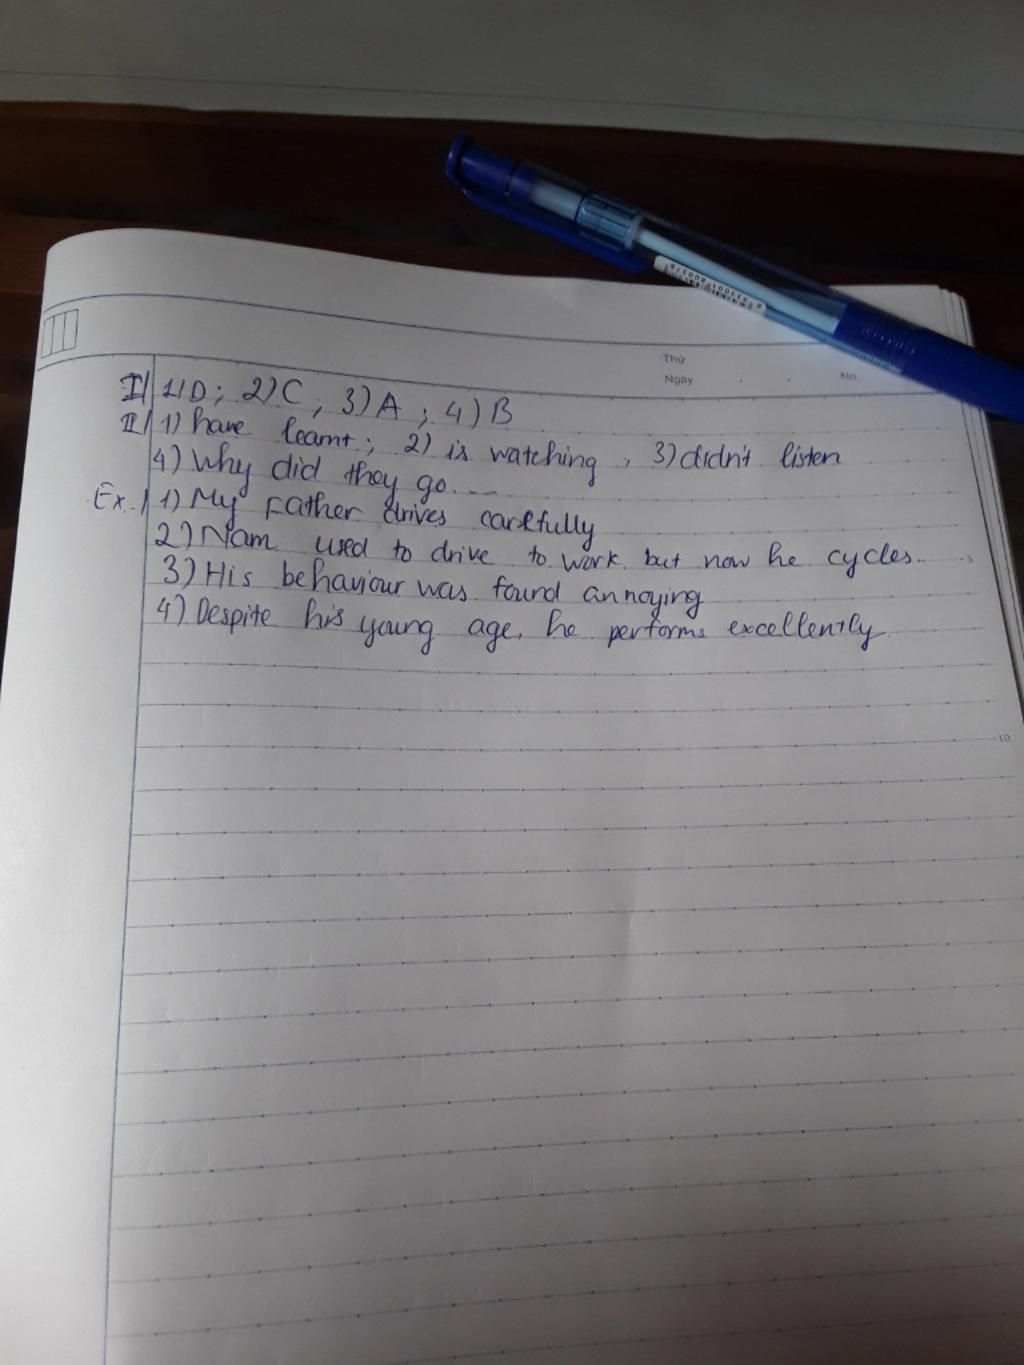 Thứ
Ngày
No.
I/ 1) D ; 2) C ; 3) A ; 4) B
II/ 1) have learnt ; 2) is watching , 3) didn't listen
4) Why did they go....
Ex./ 1) My Father drives carefully
2) Nam used to drive to work but now he cycles..
5
3) His behaviour was found annoying
4) Despite his young age, he performs excellently
10